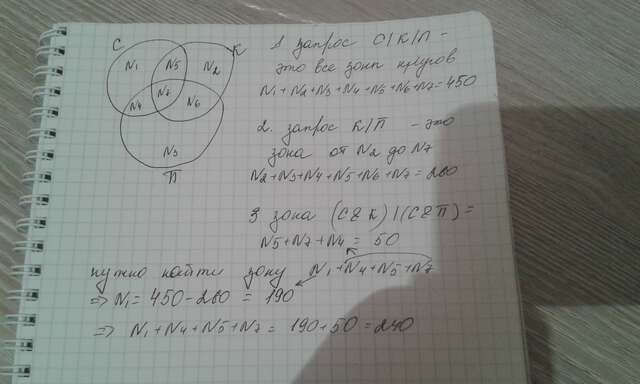 С
К
N1
N5
N2
N7
N4
N6
N3
П
1 запрос С|К|П -
это все зоны кругов
N1+N2+N3+N4+N5+N6+N7=450
2. запрос К|П - это
зона от N2 до N7
N2+N3+N4+N5+N6+N7=260
3 зона (С&К)|(С&П)=
N5+N7+N4=50
нужно найти зону N1+N4+N5+N7
⇒ N1=450-260=190
⇒ N1+N4+N5+N7=190+50=240